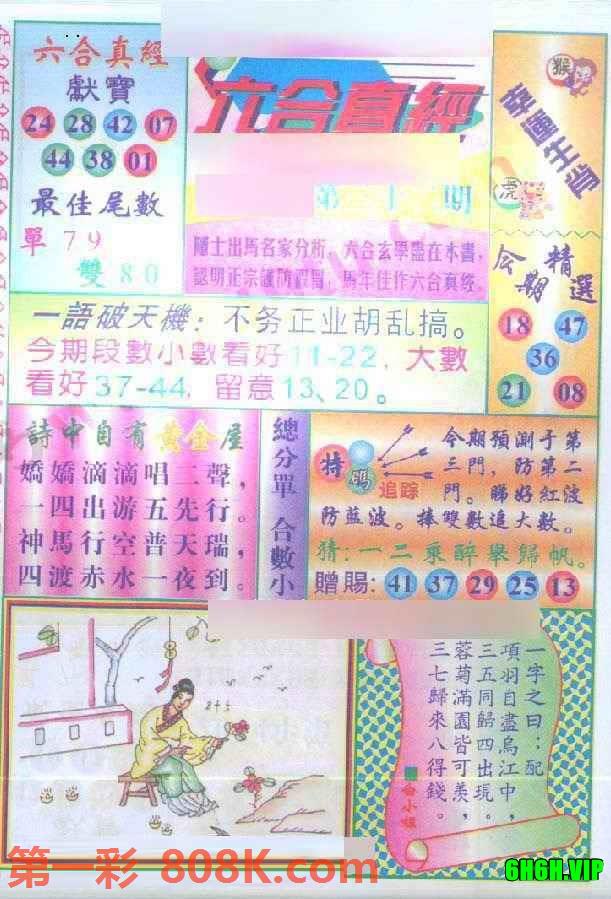 六合真經
獻寶
24 28 42 07
44 38 01
最佳尾數
單 7 9
雙 8 0
六合真經
第
期
隱士出馬名家分析，六合玄學盡在本書，
認明正宗謹防假冒，馬年佳作六合真經。
猴
幸運生肖
虎
今期精選
18 47
36
21 08
一語破天機：不务正业胡乱搞。
今期段數小數看好11-22，大數
看好37-44，留意13、20。
詩中自有黄金屋
嬌嬌滴滴唱二聲，
一四出游五先行。
神馬行空普天瑞，
四渡赤水一夜到。
總分單 合數小
特碼
追踪
今期預測于第
三門，防第二
門。睇好紅波
防藍波。捧雙數追大數。
猜：一二乘醉舉歸帆。
贈賜：41 37 29 25 13
8
一字之曰：配
項羽自盡烏江中，
三五同歸四出現。
蓉菊滿園皆可羨，
三七歸來八得錢。
白小姐
第一彩 808K.com
6H6H.VIP